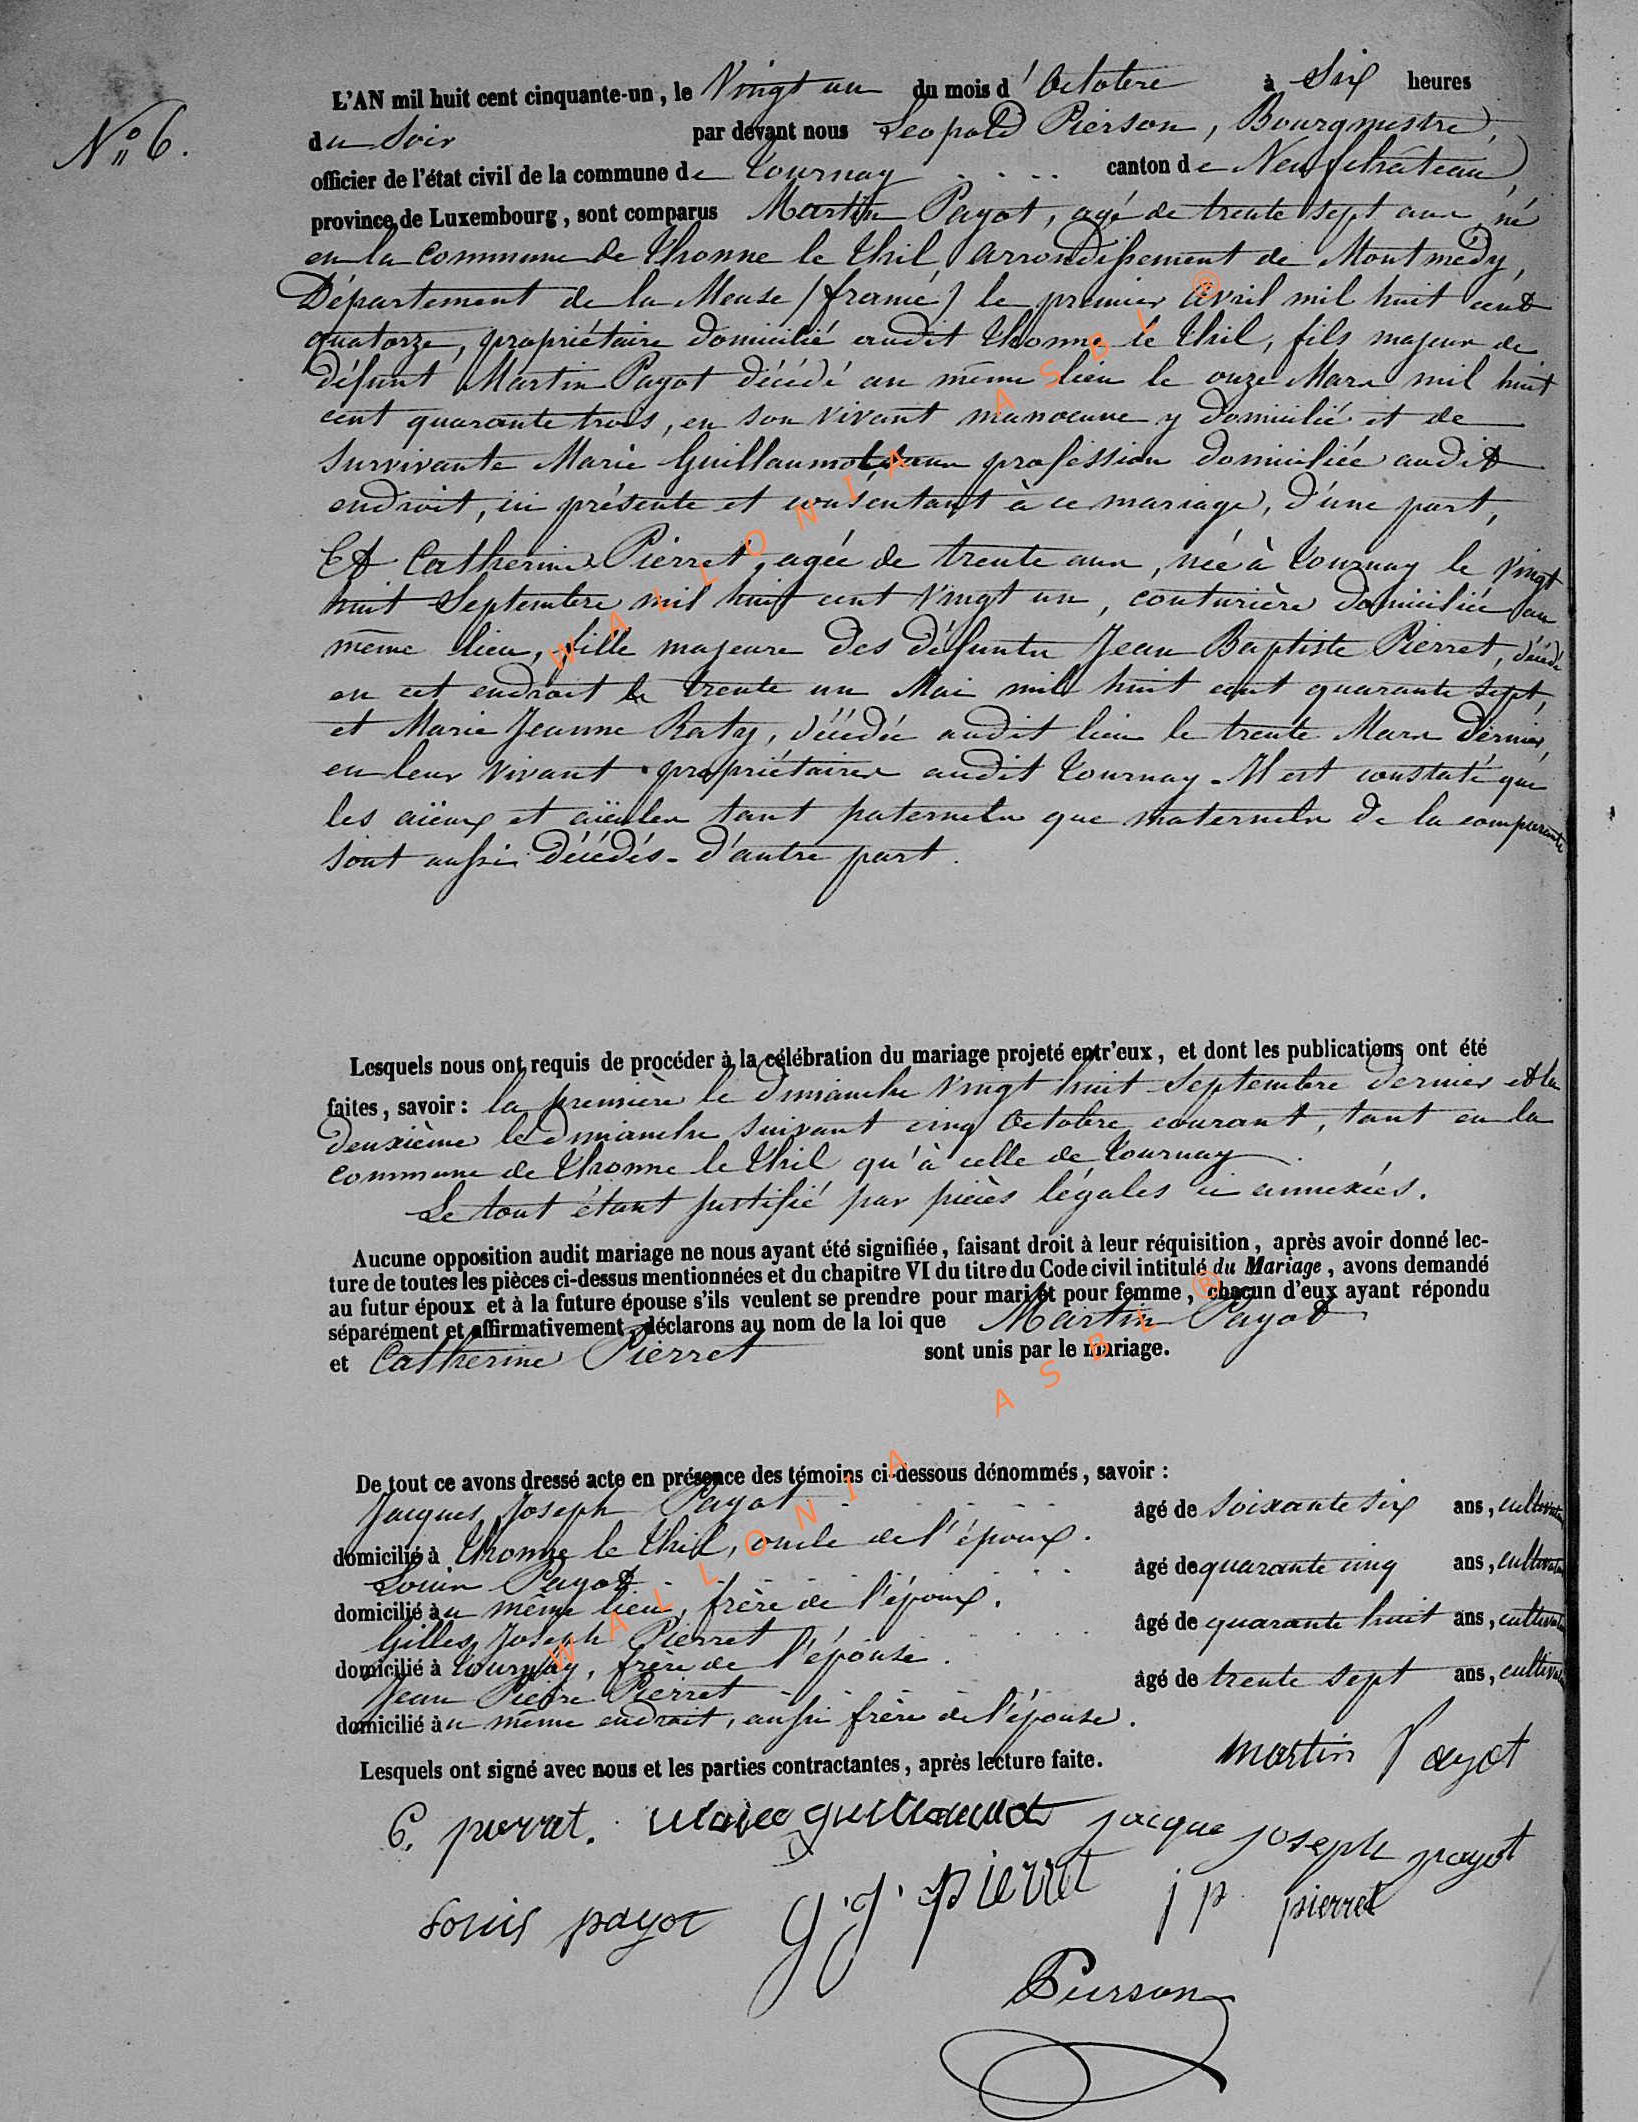 N° 6.
L'AN mil huit cent cinquante-un, le Vingt un du mois d'Octobre à Six heures
du Soir par devant nous Léopold Pierson, Bourgmestre,
officier de l'état civil de la commune de Tournay canton de Neufchâteau,
province de Luxembourg, sont comparus Martin Payot, agé de trente sept ans, né
en la commune de Thonne le Thil, arrondissement de Montmédy,
Département de la Meuse (france) le premier avril mil huit cent
quatorze, propriétaire domicilié audit Thonne le Thil, fils majeur de
défunt Martin Payot décédé au même lieu le onze Mars mil huit
cent quarante trois, en son vivant manoeuvre y domicilié et de
survivante Marie Guillaumot sans profession domiciliée audit
endroit, ici présente et consentant à ce mariage, d'une part,
Et Catherine Pierret, agée de trente ans, née à Tournay le vingt
huit Septembre mil huit cent vingt un, couturière domiciliée au
même lieu, fille majeure des défunts Jean Baptiste Pierret, décédé
en cet endroit le trente un Mai mil huit cent quarante sept,
et Marie Jeanne Raty, décédée audit lieu le trente Mars dernier,
en leur vivant propriétaires audit Tournay - Il est constaté que
les aïeux et aïeules tant paternels que maternels de la comparante
sont aussi décédés - d'autre part.
Lesquels nous ont requis de procéder à la célébration du mariage projeté entr'eux, et dont les publications ont été
faites, savoir : la première le dimanche vingt huit Septembre dernier et la
deuxième le dimanche suivant cinq Octobre courant, tant en la
commune de Thonne le Thil qu'à celle de Tournay.
Le tout étant justifié par pièces légales ci annexées.
Aucune opposition audit mariage ne nous ayant été signifiée, faisant droit à leur réquisition, après avoir donné lec-
ture de toutes les pièces ci-dessus mentionnées et du chapitre VI du titre du Code civil intitulé du Mariage, avons demandé
au futur époux et à la future épouse s'ils veulent se prendre pour mari et pour femme, chacun d'eux ayant répondu
séparément et affirmativement, déclarons au nom de la loi que Martin Payot
et Catherine Pierret sont unis par le mariage.
De tout ce avons dressé acte en présence des témoins ci-dessous dénommés, savoir :
Jacques Joseph Payot âgé de soixante six ans, cultivateur
domicilié à Thonne le Thil, oncle de l'époux.
Louis Payot âgé de quarante cinq ans, cultivateur
domicilié au même lieu, frère de l'époux.
Gilles Joseph Pierret âgé de quarante huit ans, cultivateur
domicilié à Tournay, frère de l'épouse.
Jean Pierre Pierret âgé de trente sept ans, cultivateur
domicilié au même endroit, aussi frère de l'épouse.
Lesquels ont signé avec nous et les parties contractantes, après lecture faite. martin Payot
C. pierret. jacque joseph payot
Louis payot g.j. pierret j p pierret
Pierson
WALLONIA ASBL ®
WALLONIA ASBL ®